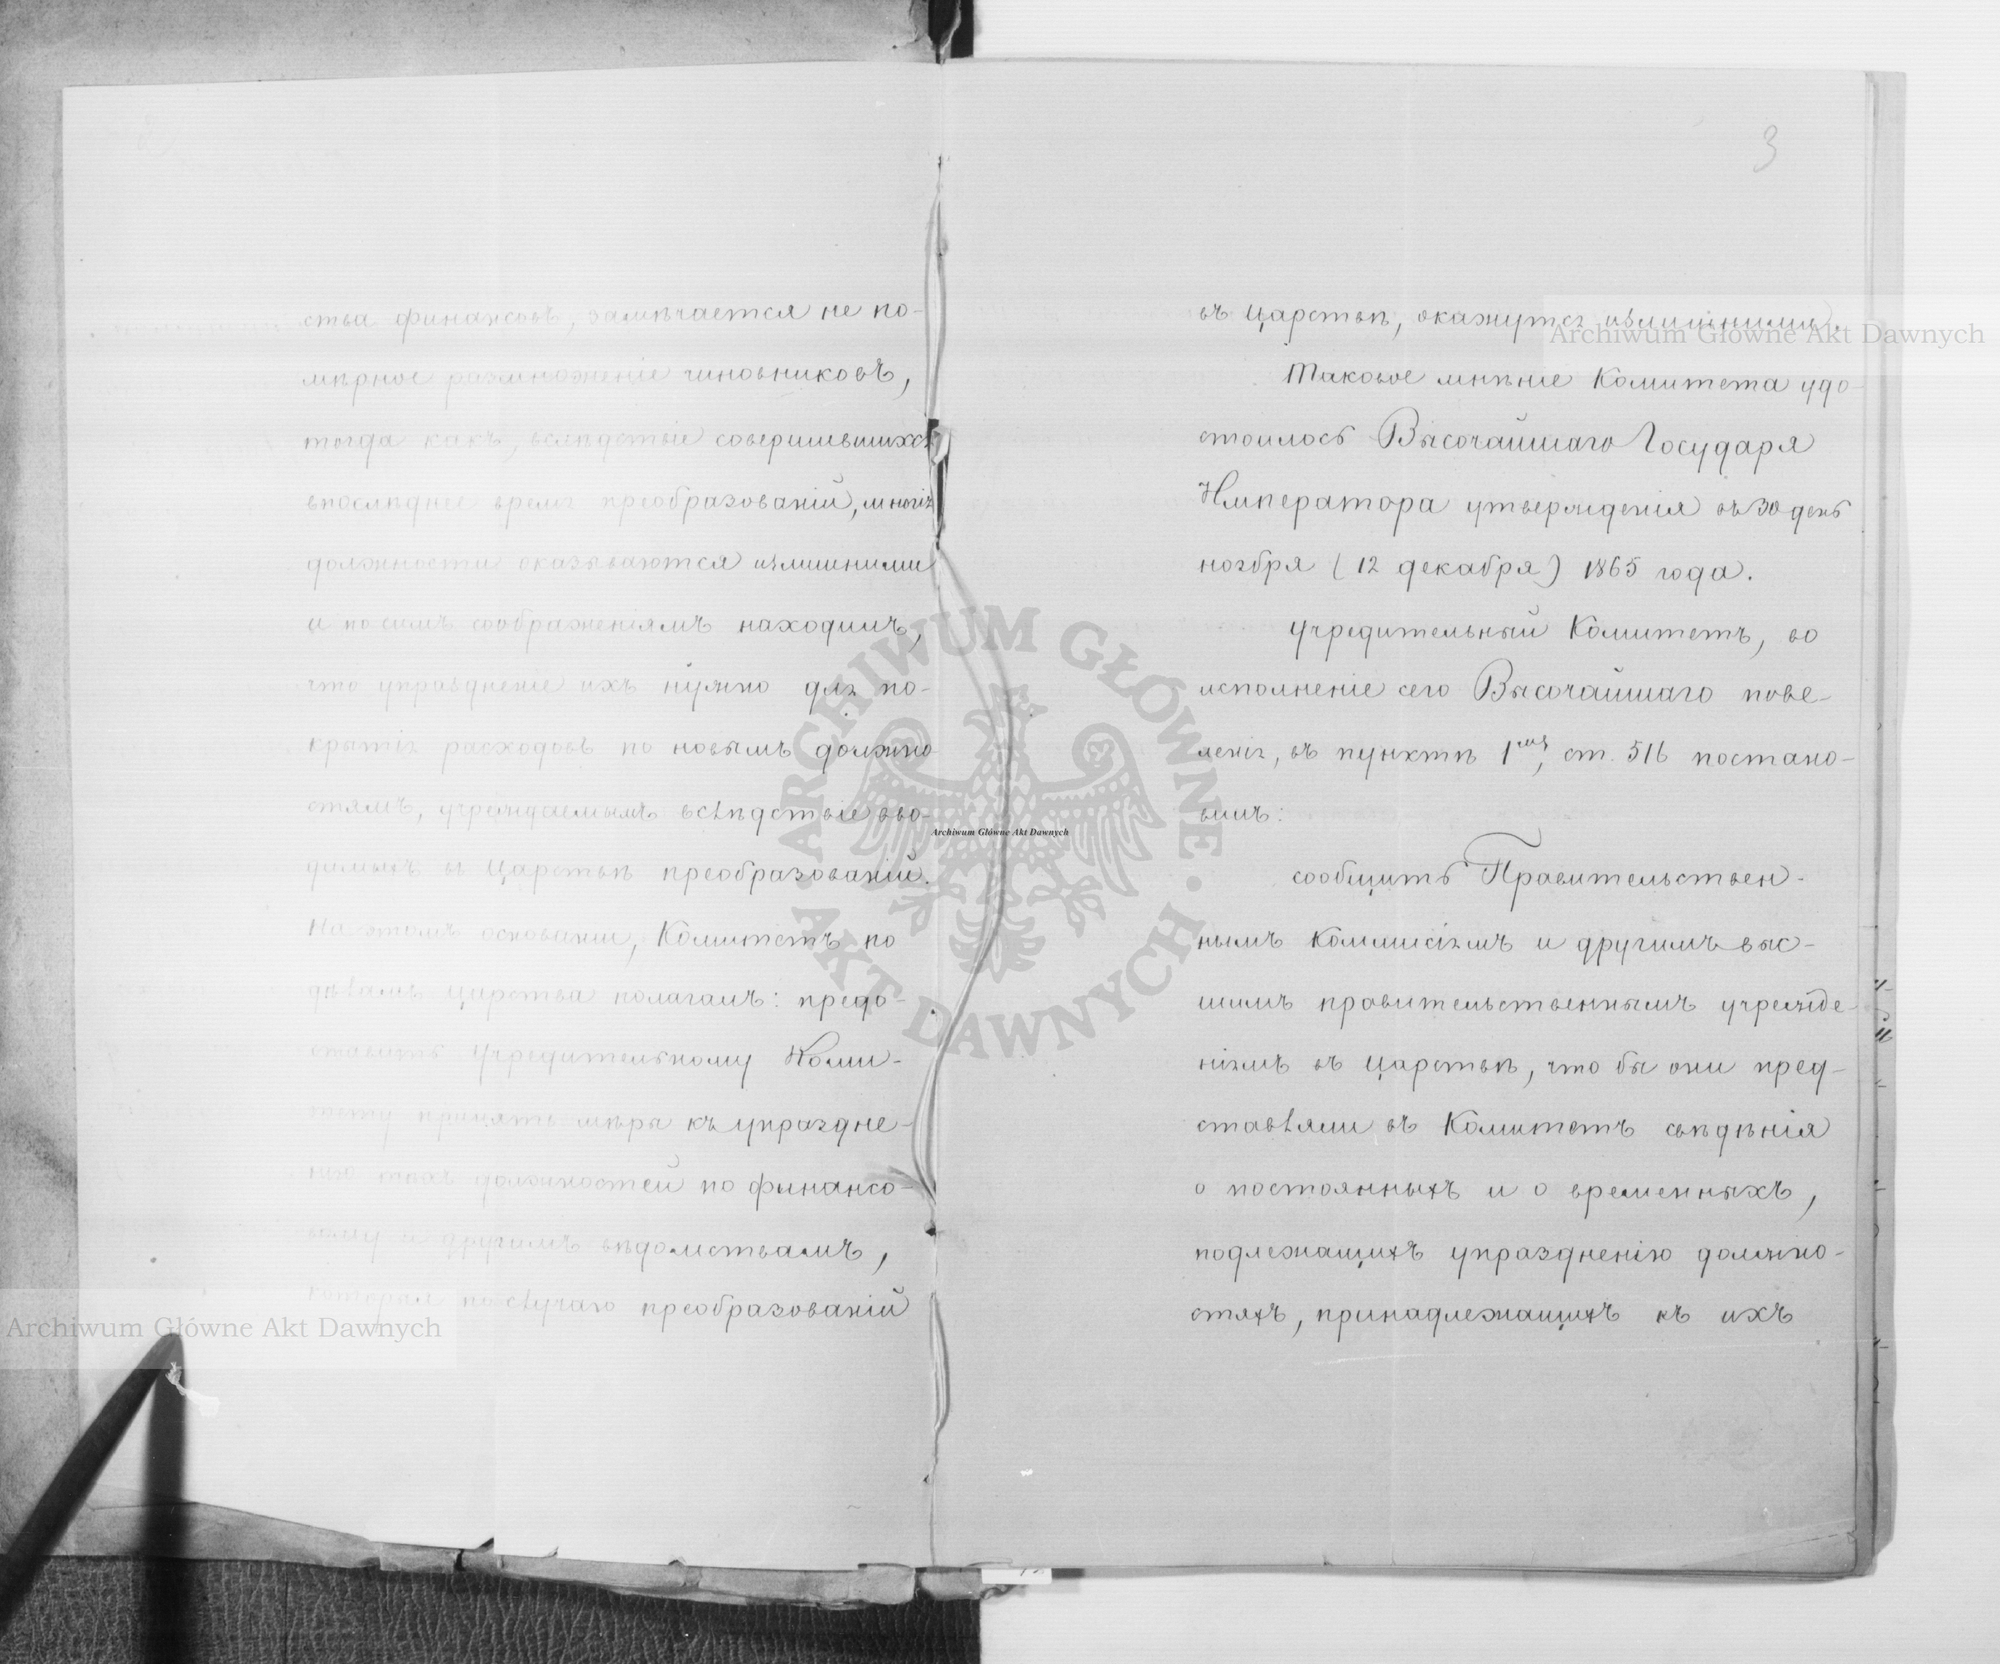 ства финансовъ, замѣчается не по-
мѣрное размноженіе чиновниковъ,
тогда какъ, вслѣдствіе совершившихся
впослѣднее время преобразованій, многія
должности оказываются излишними
и по симъ соображеніямъ находимъ,
что упраздненіе ихъ нужно для по-
крытія расходовъ по новымъ должно-
стямъ, учреждаемымъ вслѣдствіе вво-
димыхъ въ Царствѣ преобразованій.
На этомъ основаніи, Комитетъ по
дѣламъ Царства полагалъ: предо-
ставить Учредительному Коми-
тету принять мѣры къ упраздне-
нію такихъ должностей по финансо-
вому и другимъ вѣдомствамъ,
которыя по случаю преобразованій
3
въ Царствѣ, окажутся излишними.
Таковое мнѣніе Комитета удо-
стоилось Высочайшаго Государя
Императора утвержденія въ 30 день
ноября (12 декабря) 1865 года.
Учредительный Комитетъ, во
исполненіе сего Высочайшаго пове-
ленія, въ пунктѣ 1мъ, ст. 516 постано-
вилъ:
сообщить Правительствен-
нымъ Коммисіямъ и другимъ выс-
шимъ правительственнымъ учрежде-
ніямъ въ Царствѣ, что бы они пред-
ставляли въ Комитетъ свѣдѣнія
о постоянныхъ и о временныхъ,
подлежащихъ упраздненію должно-
стяхъ, принадлежащихъ къ ихъ
Archiwum Główne Akt Dawnych
Archiwum Główne Akt Dawnych
Archiwum Główne Akt Dawnych
ARCHIWUM GŁÓWNE
AKT DAWNYCH